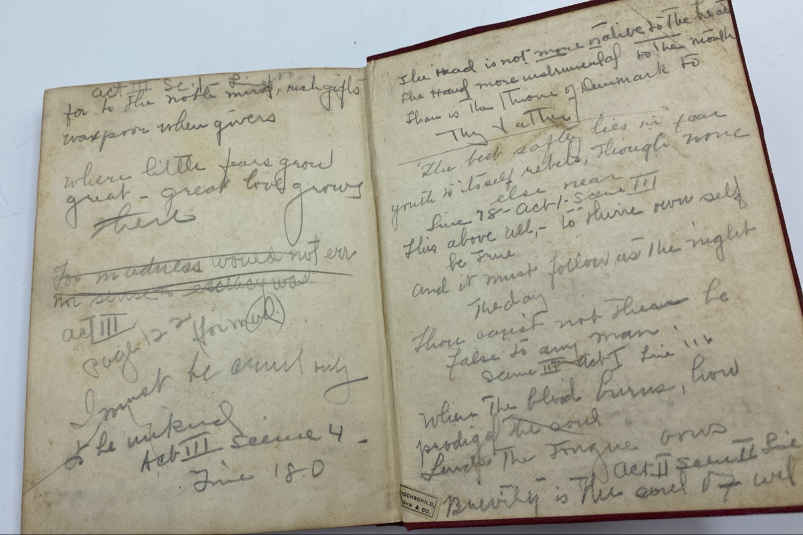 Act II Sc. 1 Line
for to the noble mind, rich gifts
wax poor when givers
where little fears grow
great - great love grows
there
For madness would not err
nor sense
act III
page 122
I must be cruel only
to be unkind
Act III Scene 4 -
Line 180
The Head is not more native to the heart
the Hand more instrumental to the mouth
Than is the Throne of Denmark to
Thy father
The best safety lies in fear
youth to itself rebels, though none
else near
Line 78 - Act 1 - Scene III
This above all, - to thine own self
be true
and it must follow as the night
The day
Thou canst not then be
false to any man.
Scene III Act I Line
When the blood burns, how
prodigal the soul
Lends the Tongue vows
Act II Scene II Line
Brevity is the soul of wit